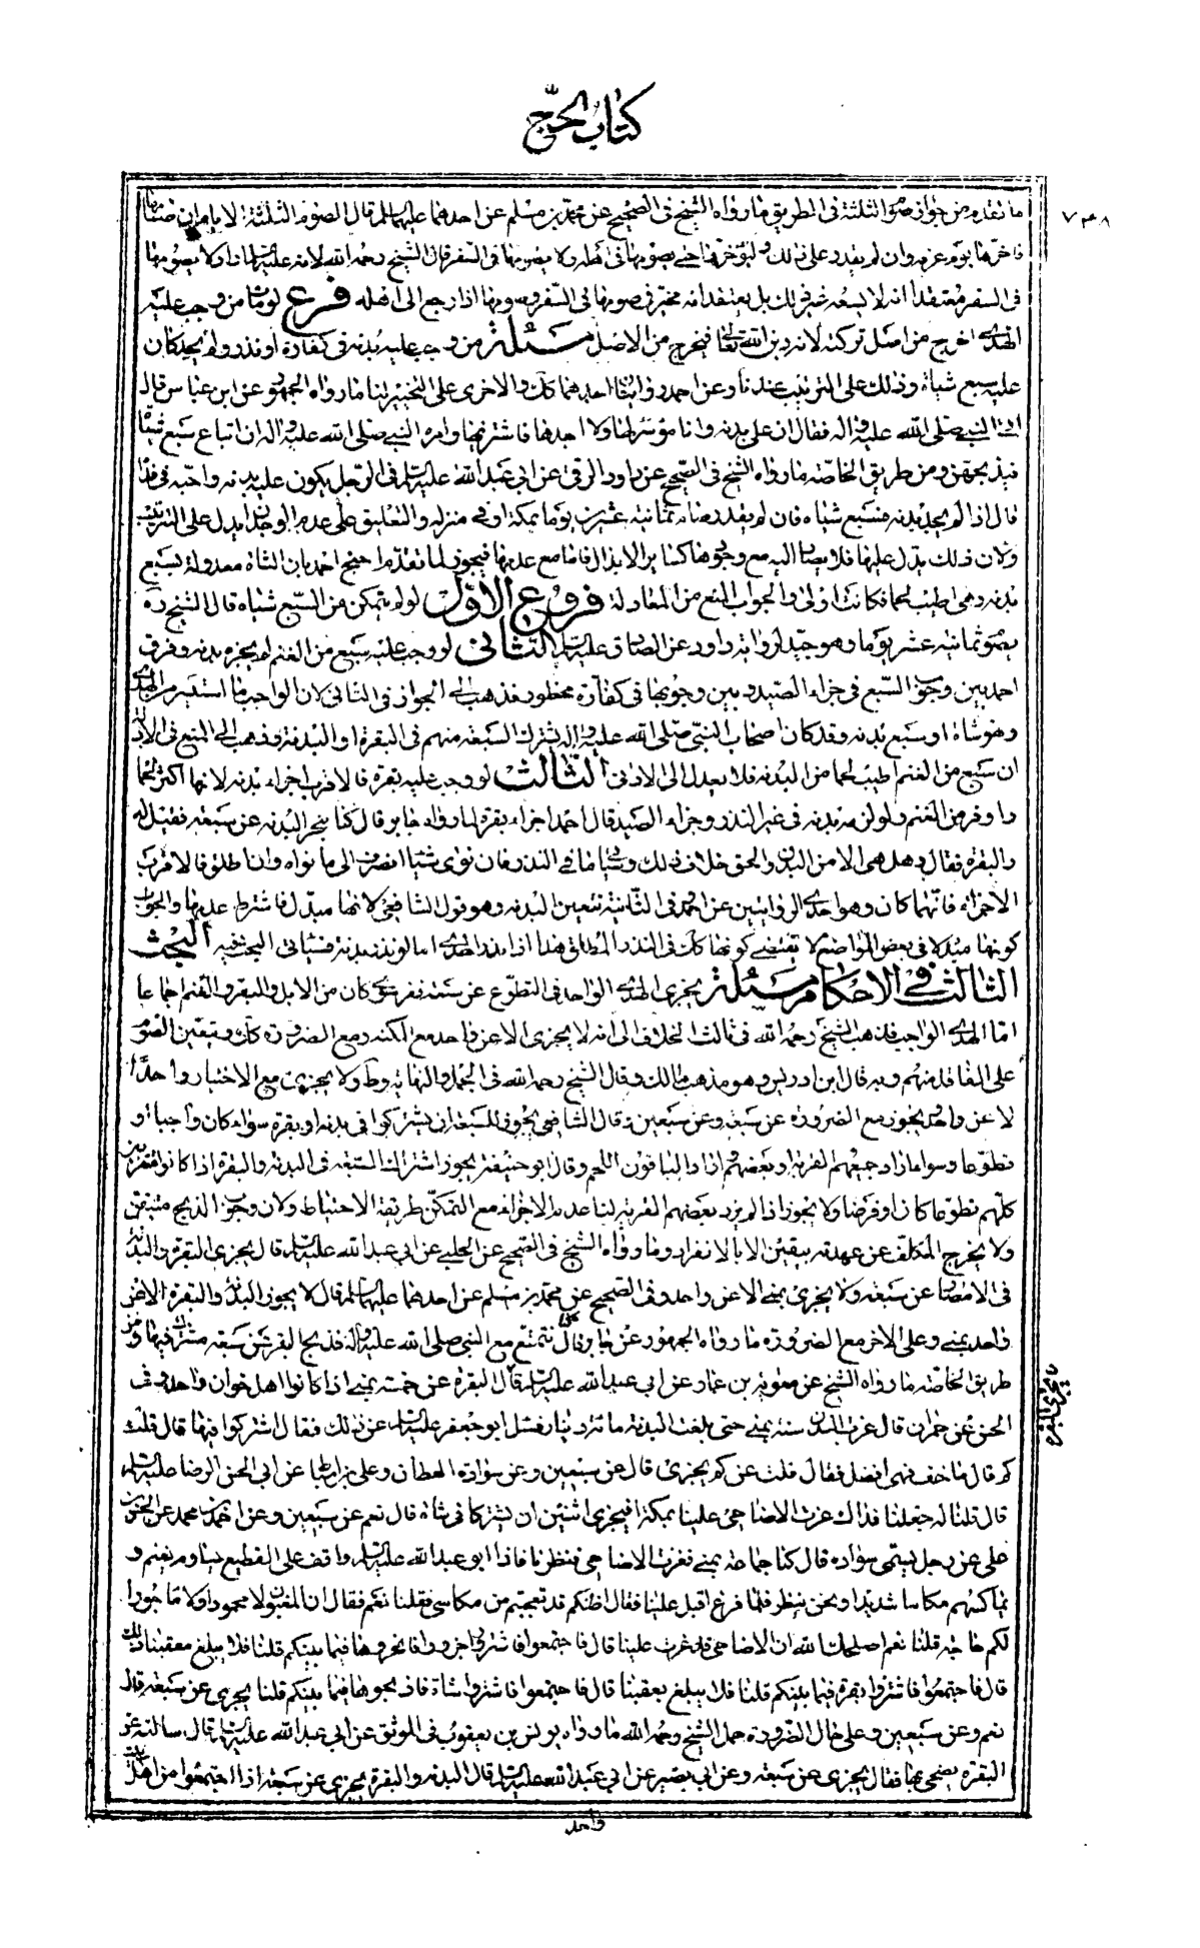 كتاب الحج
٧٤٨
ما تقدم من جواز صوم الثلثة فى الطريق ما رواه الشيخ فى الصحيح عن محمد بن مسلم عن احدهما عليهما السلم قال الصوم الثلثة الايام ان صامها
فاخرها يوم عرفة وان لم يقدر على ذلك فليؤخرها حتى يصومها فى اهله ولا يصومها فى السفر قال الشيخ رحمه الله لانه عليه السلم اراد لا يصومها
فى السفر معتقدا انه لا يسعه غير ذلك بل يعتقد انه مخير فى صومها فى السفر وصومها اذا رجع الى اهله فرع لو مات من وجب عليه
الهدى اخرج من اصل تركته لانه دين الله تعالى فيخرج من الاصل مسئلة من وجب عليه بدنة فى كفارة او نذر ولم يجد كان
عليه سبع شياة وذلك على الترتيب عندنا وعن احمد روايتان احدهما كك والاخرى على التخيير لنا ما رواه الجمهور عن ابن عباس قال
اتى النبى صلى الله عليه واله فقال ان على بدنة وانا موسر لها ولا اجدها فاشتريها وامره النبى صلى الله عليه واله ان ابتاع سبع شياه
فيذبحهن ومن طريق الخاصة ما رواه الشيخ فى الصحيح عن داود الرقى عن ابى عبد الله عليه السلم فى الرجل يكون عليه بدنة واجبة فى فداء
قال اذا لم يجد بدنة فسبع شياه فان لم يقدر صام ثمانية عشر يوما بمكة او فى منزله والتعليق على عدم الوجدان يدل على الترتيب
ولان ذلك بدل عليها فلا يصار اليه مع وجودها كساير الابدال فاما مع عدمها فيجوز لما تقدم احتج احمد بان الشاة معدولة بسبع
بدنة وهى اطيب لحما فكانت اولى والجواب المنع من المعادلة فروع الاول لو لم يتمكن من السبع شياه قال الشيخ ره
يصوم ثمانية عشر يوما وهو جيد لرواية داود عن الصادق عليه السلم الثانى لو وجب عليه سبع من الغنم لم يجزه بدنة وفرق
احمد بين وجوب السبع فى جزاء الصيد وبين وجوبها فى كفارة محظور فذهب الى الجواز فى الثانى لان الواجب ما استيسر من الهدى
وهو شاة او سبع بدنة وقد كان اصحاب النبى صلى الله عليه واله يشترك السبعة منهم فى البقرة او البدنة وذهب الى المنع فى الاول
ان سبع من الغنم اطيب لحما من البدنة فلا يعدل الى الادنى الثالث لو وجب عليه بقرة فالاقرب اجزاء بدنة لانها اكثر لحما
واوفر من الغنم ولو لزمه بدنة فى غير النذر وجزاء الصيد قال احمد اجزاء بقرة لما رواه جابر قال كنا ننحر البدنة عن سبعة فقيل له
والبقرة فقال وهل هى الا من البدن والحق خلاف ذلك واما فى النذر فان نوى شيئا انصرف الى ما نواه وان اطلق فالاقرب
الاجزاء فايهما كان وهو احدى الروايتين عن احمد فى الثانية تتعين البدنة وهو قول الشافعى لانها مبدل فاشترط عدمها والجواب
كونها مبدلا فى بعض المواضع لا تقتضى كونها كك فى النذر المطلق هذا اذا نذر الهدى اما لو نذر بدنة فسياتى البحث فيه البحث
الثالث فى الاحكام مسئلة يجزى الهدى الواحد فى التطوع عن سبعة نفر سواء كان من الابل والبقر والغنم اجماعا
اما الهدى الواجب فذهب الشيخ رحمه الله فى ثالث الخلاف الى انه لا يجزى الا عن واحد مع المكنة ومع الضرورة كك ويتعين الصوم
على الفاقد منهم وبه قال ابن ادريس وهو مذهب مالك وقال الشيخ رحمه الله فى الجمل والنهاية وط ولا يجزى مع الاختيار واحدا
لا عن واحد يجوز مع الضرورة عن سبعة وعن سبعين وقال الشافعى يجوز للسبعة ان يشتركوا فى بدنة او بقرة سواء كان واجبا او
تطوعا وسواء اراد جميعهم القربة او بعضهم اراد الباقون اللحم وقال ابو حنيفة يجوز اشتراك السبعة فى البدنة والبقرة اذا كانوا متقربين
كلهم تطوعا كان او فرضا ولا يجوز اذا لم يرد بعضهم القربة لنا عدم الاجزاء مع التمكن طريقة الاحتياط ولان وجوب الذبح متيقن
ولا يخرج المكلف عن عهدته بيقين الا بالانفراد وما رواه الشيخ فى الصحيح عن الحلبى عن ابى عبد الله عليه السلم قال يجزى البقرة والبدنة
فى الامصار عن سبعة ولا يجزى بمنى الا عن واحد وفى الصحيح عن محمد بن مسلم عن احدهما عليهما السلم قال لا يجوز البدنة والبقرة الا عن
واحد بمنى وعلى الاخر مع الضرورة ما رواه الجمهور عن جابر قال كنا نتمتع مع النبى صلى الله عليه واله فنذبح البقرة عن سبعة نشترك فيها ومن
طريق الخاصة ما رواه الشيخ عن معوية بن عمار عن ابى عبد الله عليه السلم قال البقرة عن خمسة بمنى اذا كانوا اهل خوان واحد وفى
الحسن عن حمران قال عزت البدن سنة بمنى حتى بلغت البدنة مائة دينار فسئل ابو جعفر عليه السلم عن ذلك فقال اشتركوا فيها قال قلت
كم قال ما خف فهو افضل فقال قلت عن كم يجزى قال عن سبعين وعن سوادة القطان وعلى بن اسباط عن ابى الحسن الرضا عليه السلم
قال قلنا له جعلنا فداك عزت الاضاحى علينا بمكة افيجزى اثنين ان يشتركا فى شاة قال نعم عن سبعين وعن احمد بن محمد عن الحسن بن
على عن رجل يسمى سوادة قال كنا جماعة بمنى فعزت الاضاحى فنظرنا فاذا ابو عبد الله عليه السلم واقف على القطيع يساوم بغنم و
يماكسهم مكاسا شديدا ونحن ننظر فلما فرغ اقبل علينا فقال اظنكم قد تعجبتم من مكاسى فقلنا نعم فقال ان المغبون لا محمود ولا ماجور ا
لكم حاجة قلنا نعم اصلحك الله ان الاضاحى قد عزت علينا قال فاجتمعوا فاشتروا جزورا فانحروها فيما بينكم قلنا فلا يبلغ نفقتنا ذلك
قال فاجتمعوا فاشتروا بقرة فيما بينكم قلنا فلا يبلغ نفقتنا قال فاجتمعوا فاشتروا شاة فاذبحوها فيما بينكم قلنا يجزى عن سبعة قال
نعم وعن سبعين وعلى حال الضرورة حمل الشيخ رحمه الله ما رواه يونس بن يعقوب فى الموثق عن ابى عبد الله عليه السلم قال سالته عن
البقرة يضحى بها فقال يجزى عن سبعة وعن ابى بصير عن ابى عبد الله عليه السلم قال البدنة والبقرة يجزى عن سبعة اذا اجتمعوا من اهل بيت
واحد